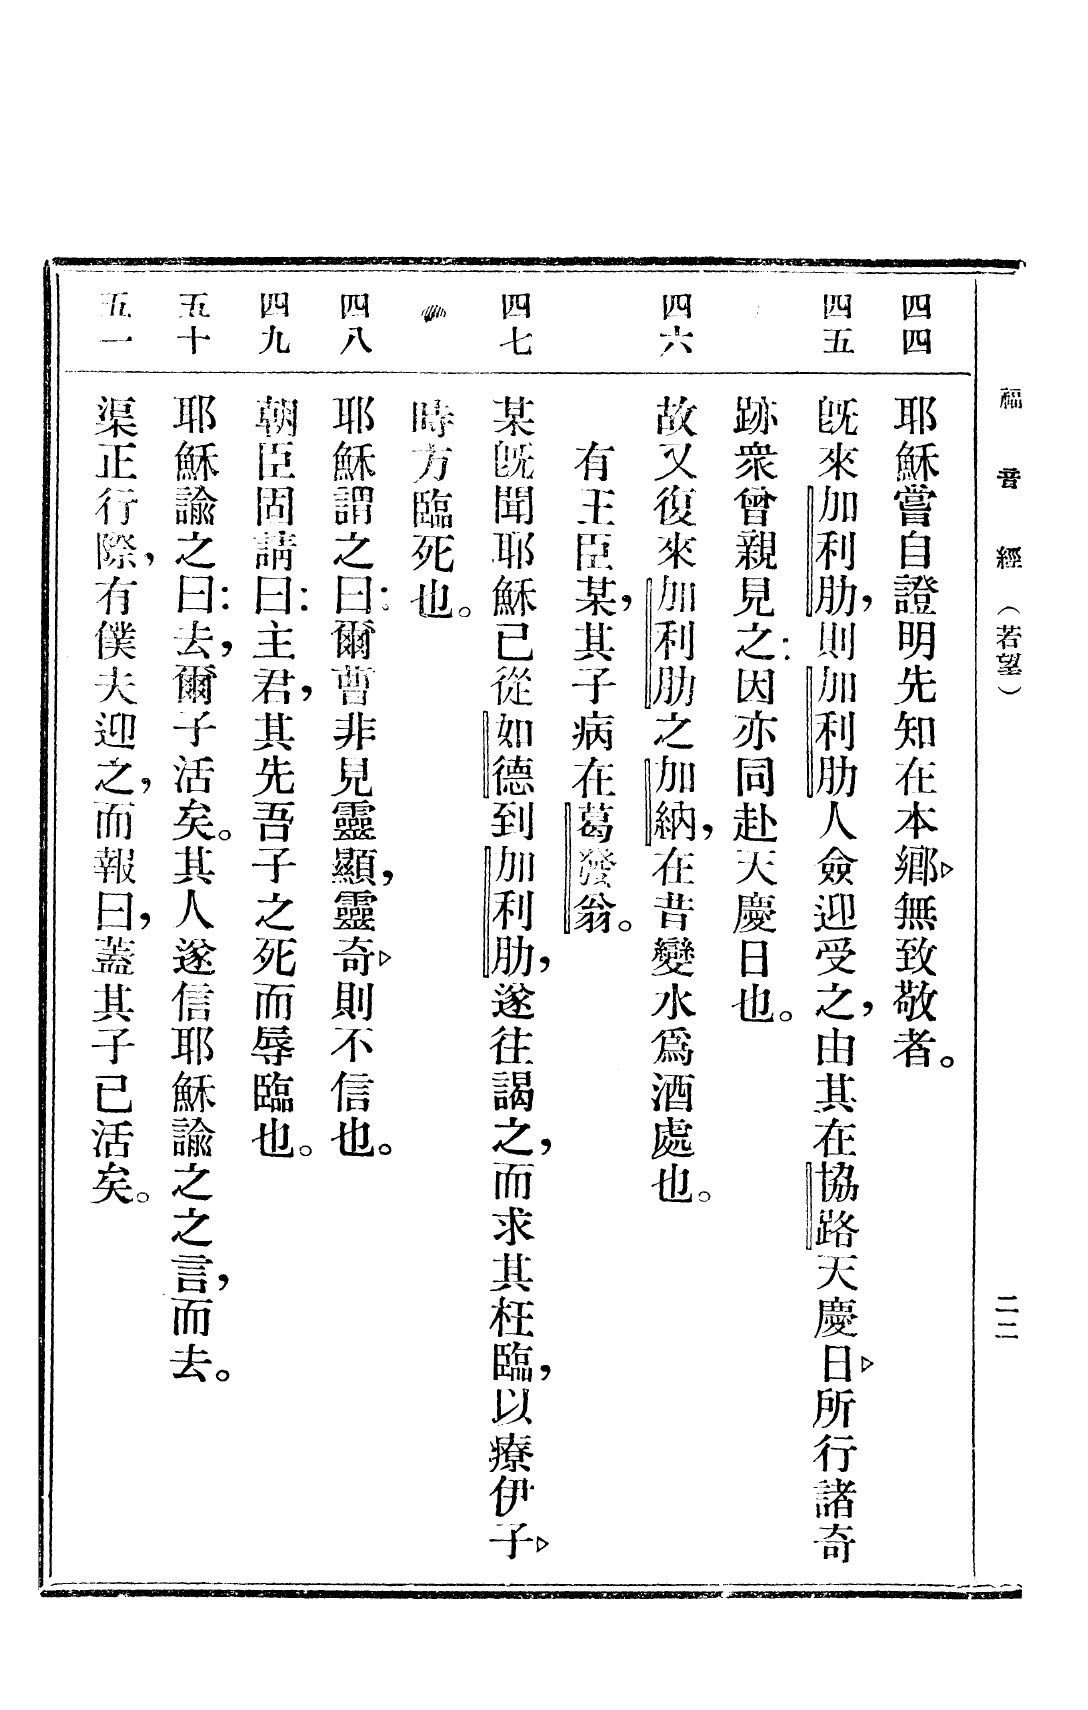 福音經（若望）　二二
四四　耶穌嘗自證明先知在本鄉▷無致敬者。
四五　旣來加利肋，則加利肋人僉迎受之，由其在協路天慶日▷所行諸奇
跡衆曾親見之：因亦同赴天慶日也。
四六　故又復來加利肋之加納，在昔變水爲酒處也。
有王臣某，其子病在葛發翁。
四七　某旣聞耶穌已從如德到加利肋，遂往謁之，而求其枉臨，以療伊子▷
時方臨死也。
四八　耶穌謂之曰：爾曹非見靈顯，靈奇▷則不信也。
四九　朝臣固請曰：主君，其先吾子之死而辱臨也。
五十　耶穌諭之曰：去，爾子活矣。其人遂信耶穌諭之之言，而去。
五一　渠正行際，有僕夫迎之，而報曰，蓋其子已活矣。